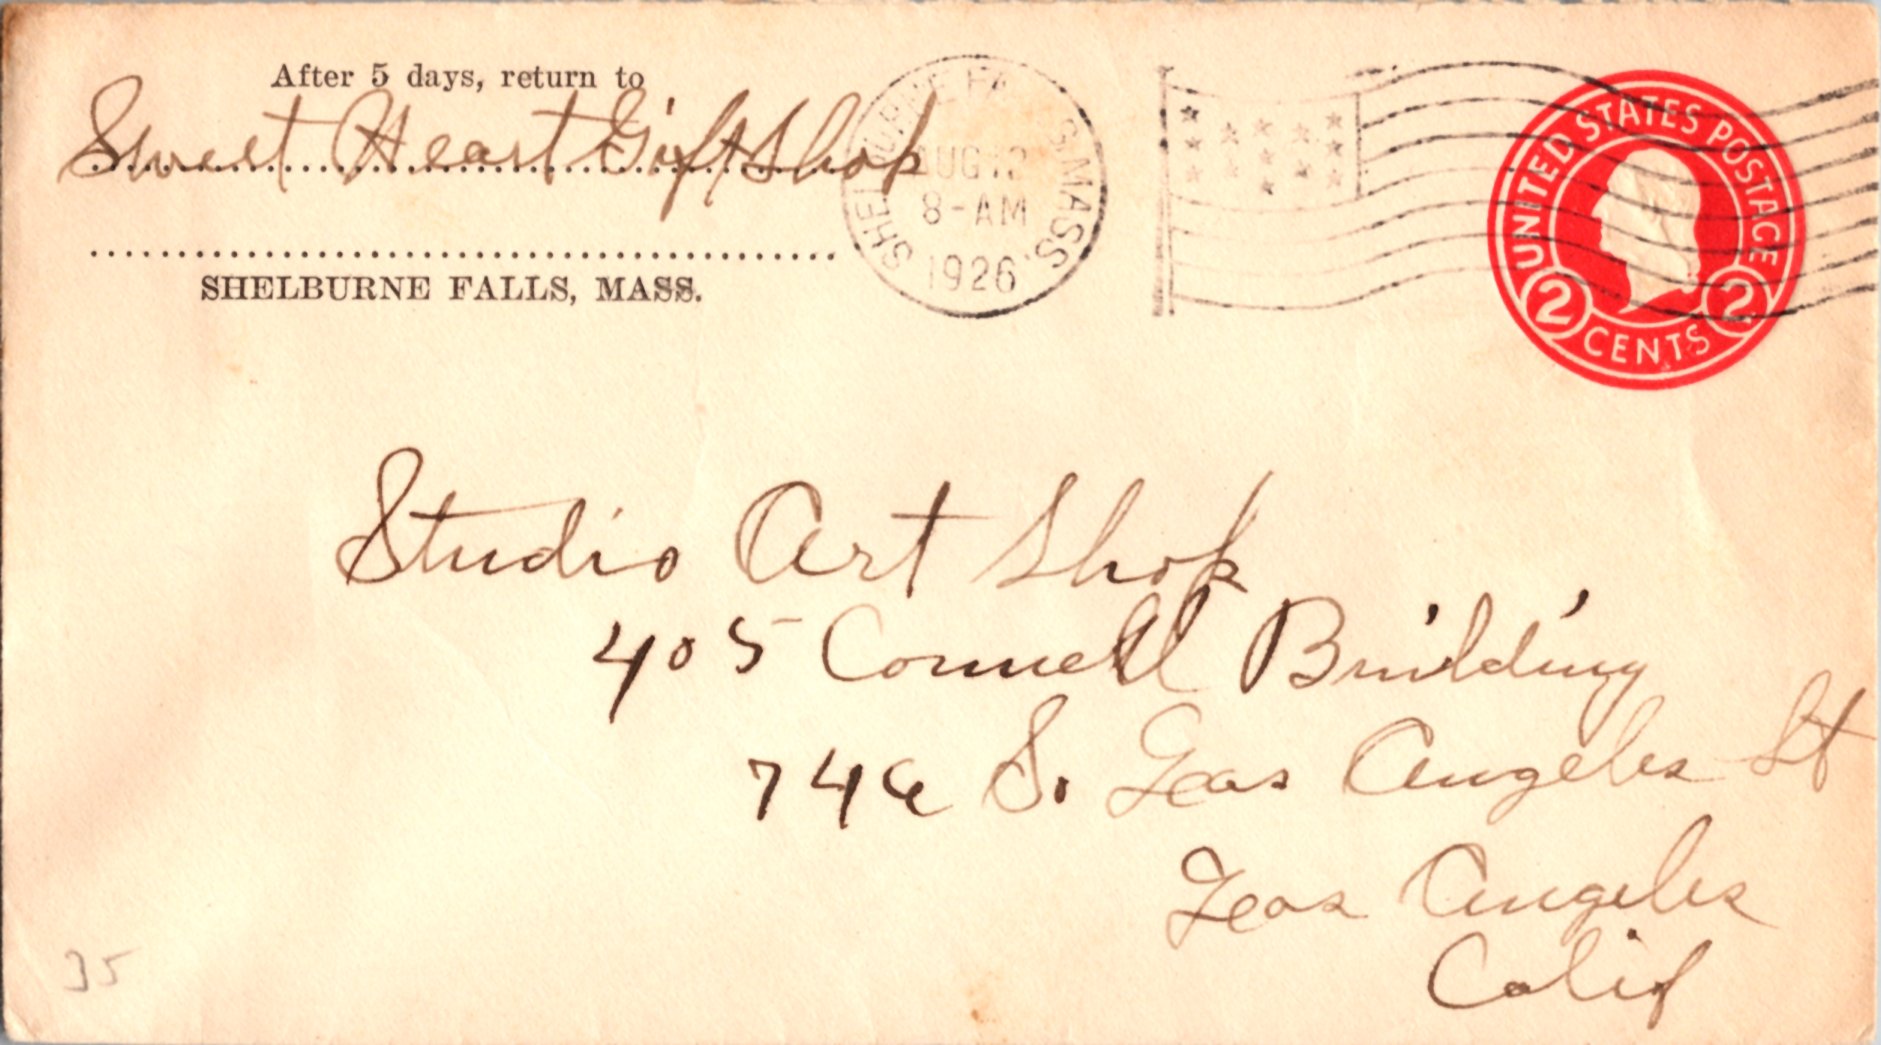 After 5 days, return to
Sweet Heart Gift Shop
SHELBURNE FALLS, MASS.
SHELBURNE FALLS, MASS.
AUG 12
8-AM
1926
UNITED STATES POSTAGE
2 CENTS 2
Studio Art Shop
405 Connell Building
746 S. Leos Angeles St
Leos Angeles
Calif
35